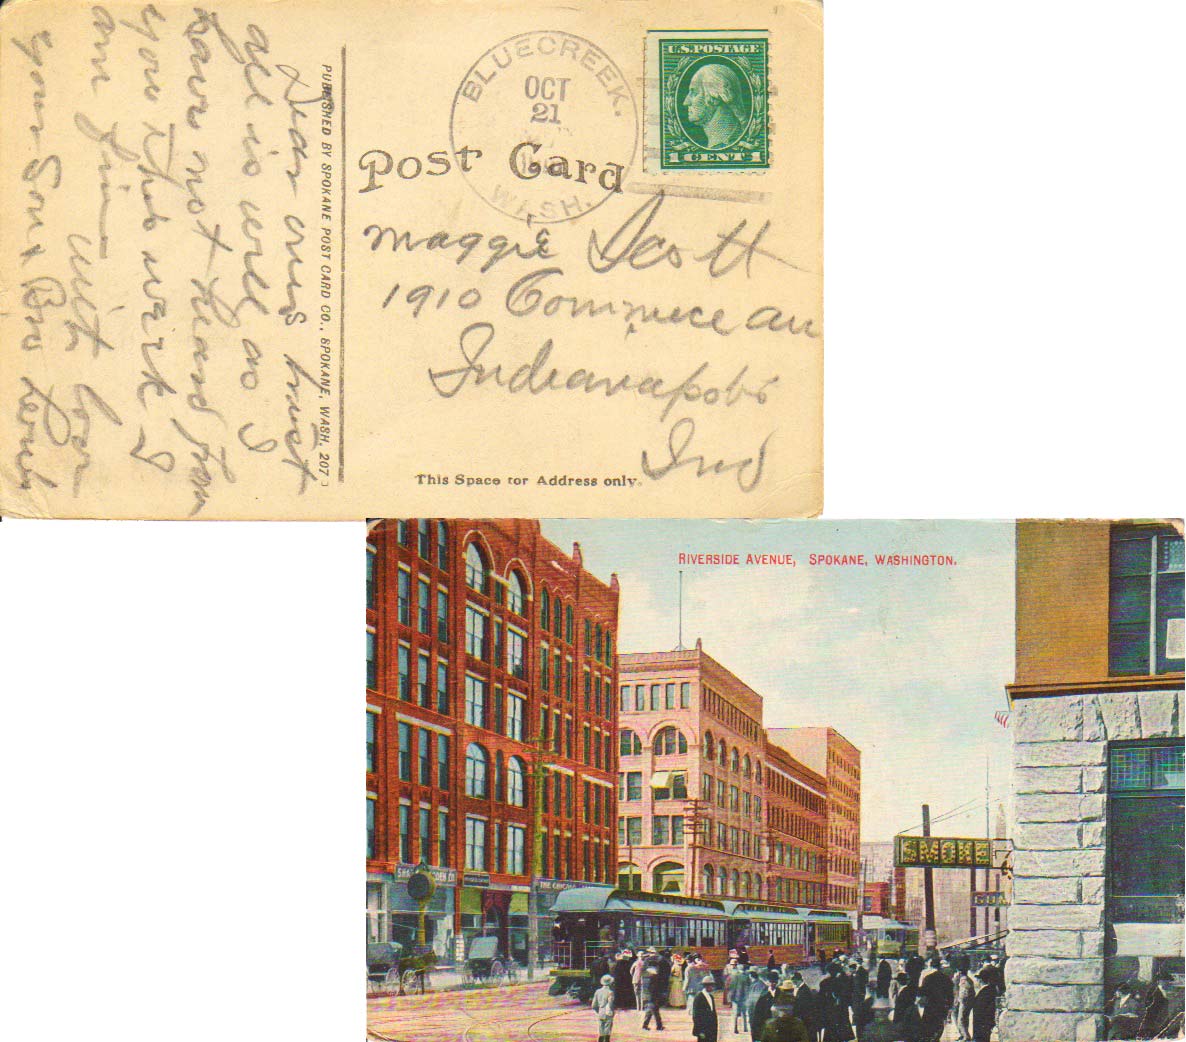 Dear ones trust
all is well as I
have not heard from
you this week I
am fine with love
your Son & Bro
PUBLISHED BY SPOKANE POST CARD CO., SPOKANE, WASH. 207
BLUECREEK.
OCT
21
WASH.
U.S. POSTAGE
1 CENT 1
Post Card
Maggie Scott
1910 Commerce av
Indianapolis
Ind
This Space for Address only.
RIVERSIDE AVENUE, SPOKANE, WASHINGTON.
SMOKE
THE CHICAGO